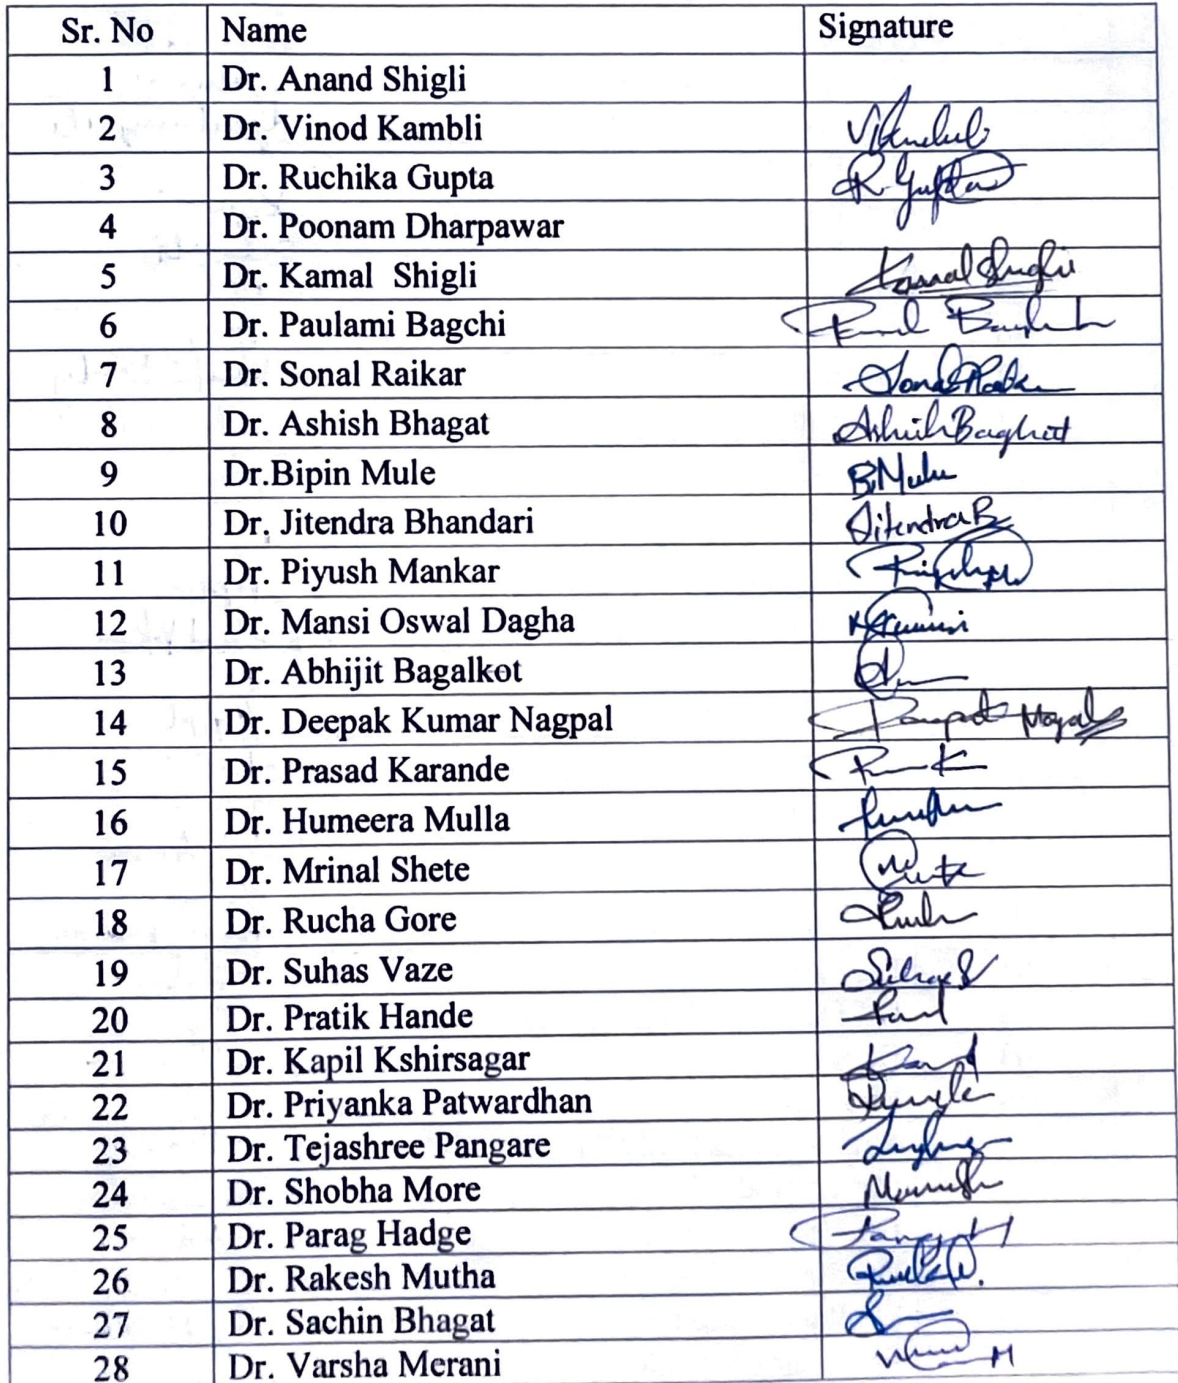 Sr. No Name Signature
1 Dr. Anand Shigli
2 Dr. Vinod Kambli
3 Dr. Ruchika Gupta R. Gupta
4 Dr. Poonam Dharpawar
5 Dr. Kamal Shigli Kamal Shigli
6 Dr. Paulami Bagchi
7 Dr. Sonal Raikar
8 Dr. Ashish Bhagat Ashish Baghat
9 Dr.Bipin Mule B.Mule
10 Dr. Jitendra Bhandari Jitendra B
11 Dr. Piyush Mankar
12 Dr. Mansi Oswal Dagha
13 Dr. Abhijit Bagalkot
14 Dr. Deepak Kumar Nagpal
15 Dr. Prasad Karande
16 Dr. Humeera Mulla
17 Dr. Mrinal Shete
18 Dr. Rucha Gore
19 Dr. Suhas Vaze
20 Dr. Pratik Hande
21 Dr. Kapil Kshirsagar
22 Dr. Priyanka Patwardhan
23 Dr. Tejashree Pangare
24 Dr. Shobha More
25 Dr. Parag Hadge
26 Dr. Rakesh Mutha
27 Dr. Sachin Bhagat
28 Dr. Varsha Merani